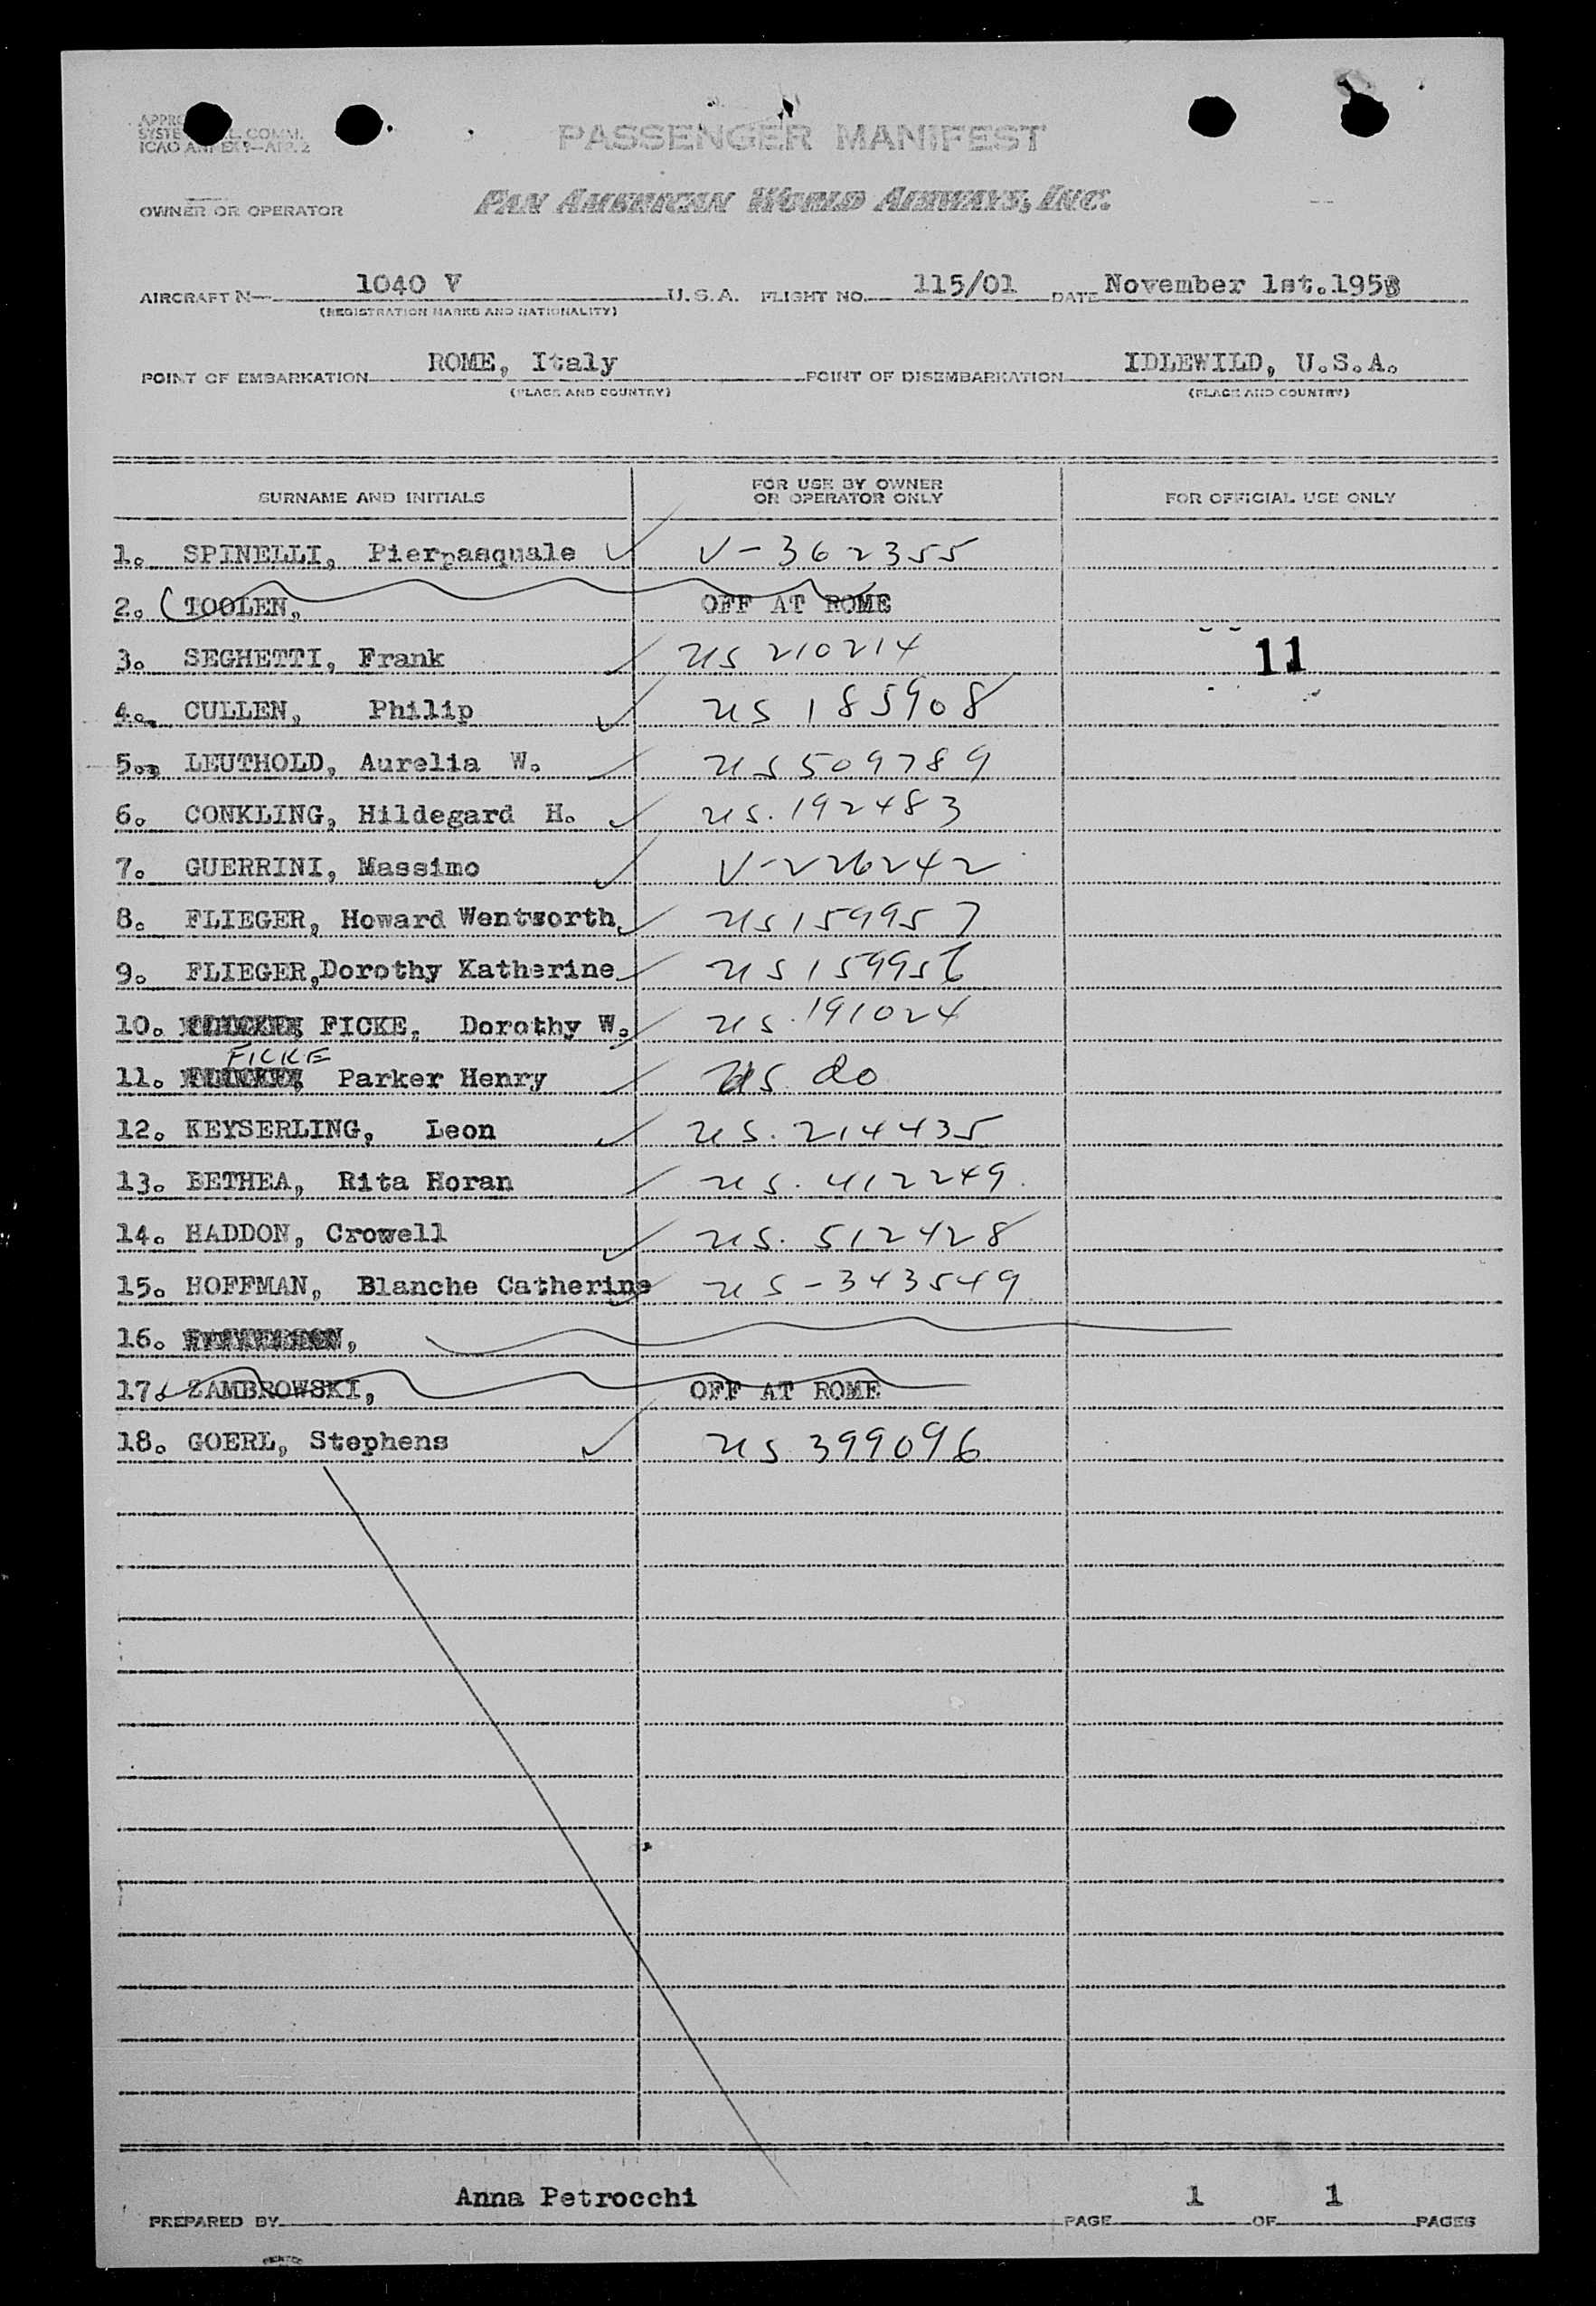 PASSENGER MANIFEST
OWNER OR OPERATOR PAN AMERICAN WORLD AIRWAYS, INC.
AIRCRAFT N 1040 V U.S.A. FLIGHT NO. 115/01 DATE November 1st.1953
(REGISTRATION MARKS AND NATIONALITY)
POINT OF EMBARKATION ROME, Italy POINT OF DISEMBARKATION IDLEWILD, U.S.A.
(PLACE AND COUNTRY) (PLACE AND COUNTRY)
SURNAME AND INITIALS FOR USE BY OWNER OR OPERATOR ONLY FOR OFFICIAL USE ONLY
1. SPINELLI, Pierpasquale V-362355
2. (TOOLEN, OFF AT ROME
3. SEGHETTI, Frank US 210214 11
4. CULLEN, Philip US 185908
5. LEUTHOLD, Aurelia W. US 509789
6. CONKLING, Hildegard H. US. 192483
7. GUERRINI, Massimo V-226242
8. FLIEGER, Howard Wentworth US 159957
9. FLIEGER,Dorothy Katherine US 159956
10. FICKE, Dorothy W. US. 191024
FICKE
11. Parker Henry US do
12. KEYSERLING, Leon US. 214435
13. BETHEA, Rita Horan US. 412249
14. HADDON, Crowell US. 512428
15. HOFFMAN, Blanche Catherine US-343549
16.
17. ZAMBROWSKI, OFF AT ROME
18. GOERL, Stephens US 399096
PREPARED BY Anna Petrocchi PAGE 1 OF 1 PAGES